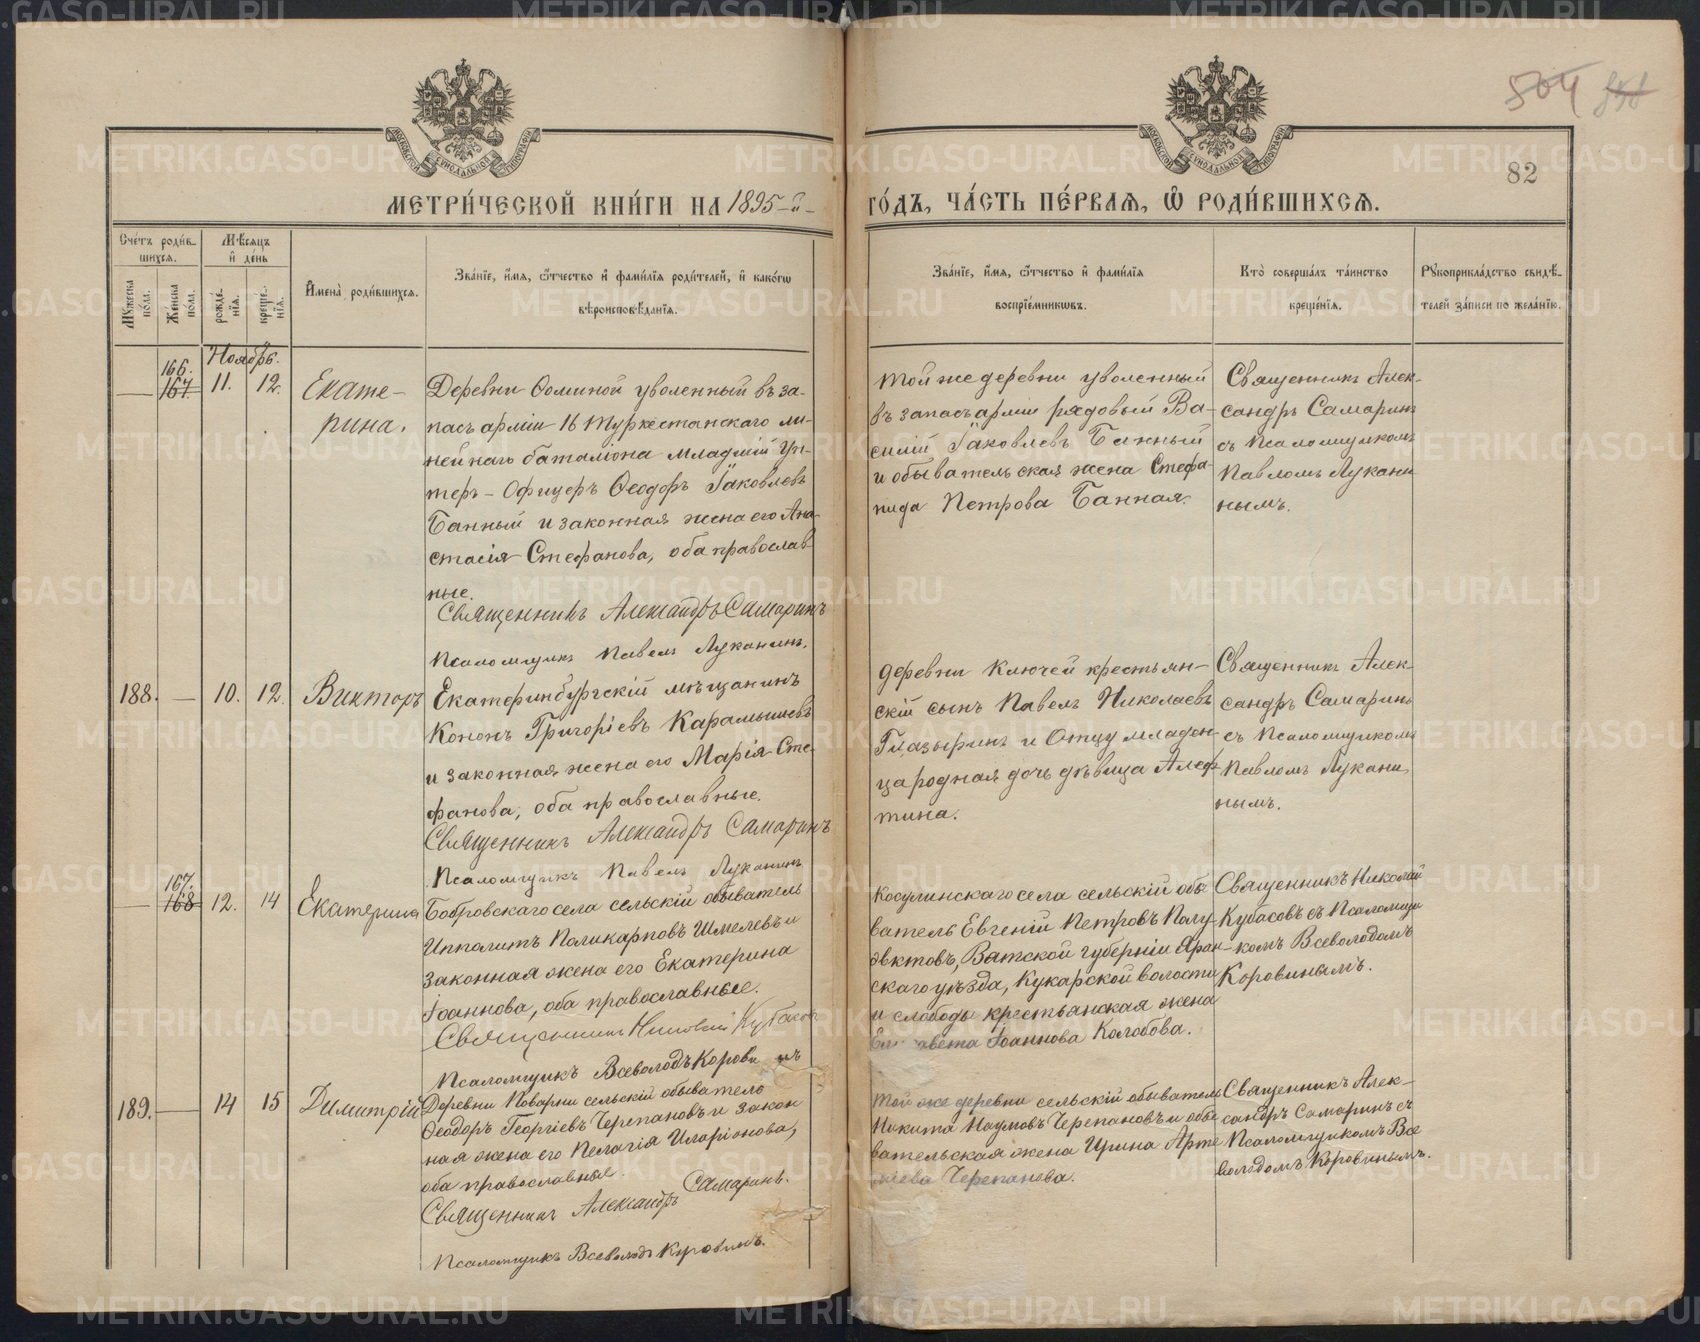 504 858
82
МЕТРИ́ЧЕСКОЙ КНИ́ГИ НА 1895-й
ГО́ДЪ, ЧА́СТЬ ПЕ́РВАЯ, Ѡ҆ РОДИ́ВШИХСЯ.
Сче́тъ роди́в-
шихся.
Мѣ́сяцъ
и҆ де́нь
Мꙋ́жеска по́ла.
Же́нска по́ла.
рожде́-
нїя.
креще́-
нїя.
И҆мена̀ роди́вшихся.
Зва́нїе, и҆́мя, ѻ҆́тчество и҆ фами́лїя роди́телей, и҆ како́гѡ
вѣроисповѣ́данїя.
Зва́нїе, и҆́мя, ѻ҆́тчество и҆ фами́лїя
воспрїе́мникѡвъ.
Кто̀ соверша́лъ та́инство
креще́нїя.
Рꙋкоприкла́дство свидѣ́-
телей за́писи по жела́нїю.
Ноябрь.
166.
167. 11. 12.
Екате-
рина.
Деревни Ѳоминой уволенный въ за-
пасъ арміи 16 Туркестанскаго ли-
нейнаго баталіона младшій Ун-
теръ-Офицеръ Ѳеодоръ Іаковлевъ
Банный и законная жена его Ана-
стасія Стефанова, оба православ-
ные.
Священникъ Александръ Самаринъ
Псаломщикъ Павелъ Луканинъ.
той же деревни уволенный
въ запасъ арміи рядовый Ва-
силій Іаковлевъ Банный
и обывательская жена Стефа-
нида Петрова Банная.
Священникъ Алек-
сандръ Самаринъ
съ Псаломщикомъ
Павломъ Лукани
нымъ.
188. — 10. 12. Викторъ
Екатеринбургскій мѣщанинъ
Кононъ Григоріевъ Карамышевъ
и законная жена его Марія Сте-
фанова, оба православные.
Священникъ Александръ Самаринъ
Псаломщикъ Павелъ Луканинъ
деревни Ключей крестьян-
скій сынъ Павелъ Николаевъ
Глазыринъ и Отцу младен-
ца родная дочь дѣвица Алеф
тина.
Священникъ Алек-
сандръ Самаринъ
съ Псаломщикомъ
Павломъ Лукани,
нымъ.
167.
168 12. 14 Екатерина
Бобровскаго села сельскій обыватель
Ипполитъ Поликарповъ Шмелевъ и
законная жена его Екатерина
Іоаннова, оба православные.
Священникъ Николай Кубасов
Псаломщикъ Всеволодъ Корови нъ
Косулинскаго села сельскій обы
ватель Евгеній Петровъ Полу-
эвктовъ, Вятской губерніи Яран-
скаго уѣзда, Кукарской волости
и слободы крестьянская жена
Ели авета Іоаннова Колобова.
Священникъ Николай
Кубасовъ съ Псаломщи
комъ Всеволодомъ
Коровинымъ.
189. — 14 15 Димитрій
Деревни Поварни сельскій обыватель
Ѳеодоръ Георгіевъ Черепановъ и закон
ная жена его Пелагія Иларіонова,
оба православные.
Священникъ Александръ Самаринъ.
Псаломщикъ Всеволодъ Коровинъ.
Той же деревни сельскій обыватель
Никита Наумовъ Черепановъ и обы
вательская жена Ирина Арте
міева Черепанова.
Священникъ Алек-
сандръ Самаринъ съ
Псаломщикомъ Все
володомъ Коровинымъ.
METRIKI.GASO-URAL.RU